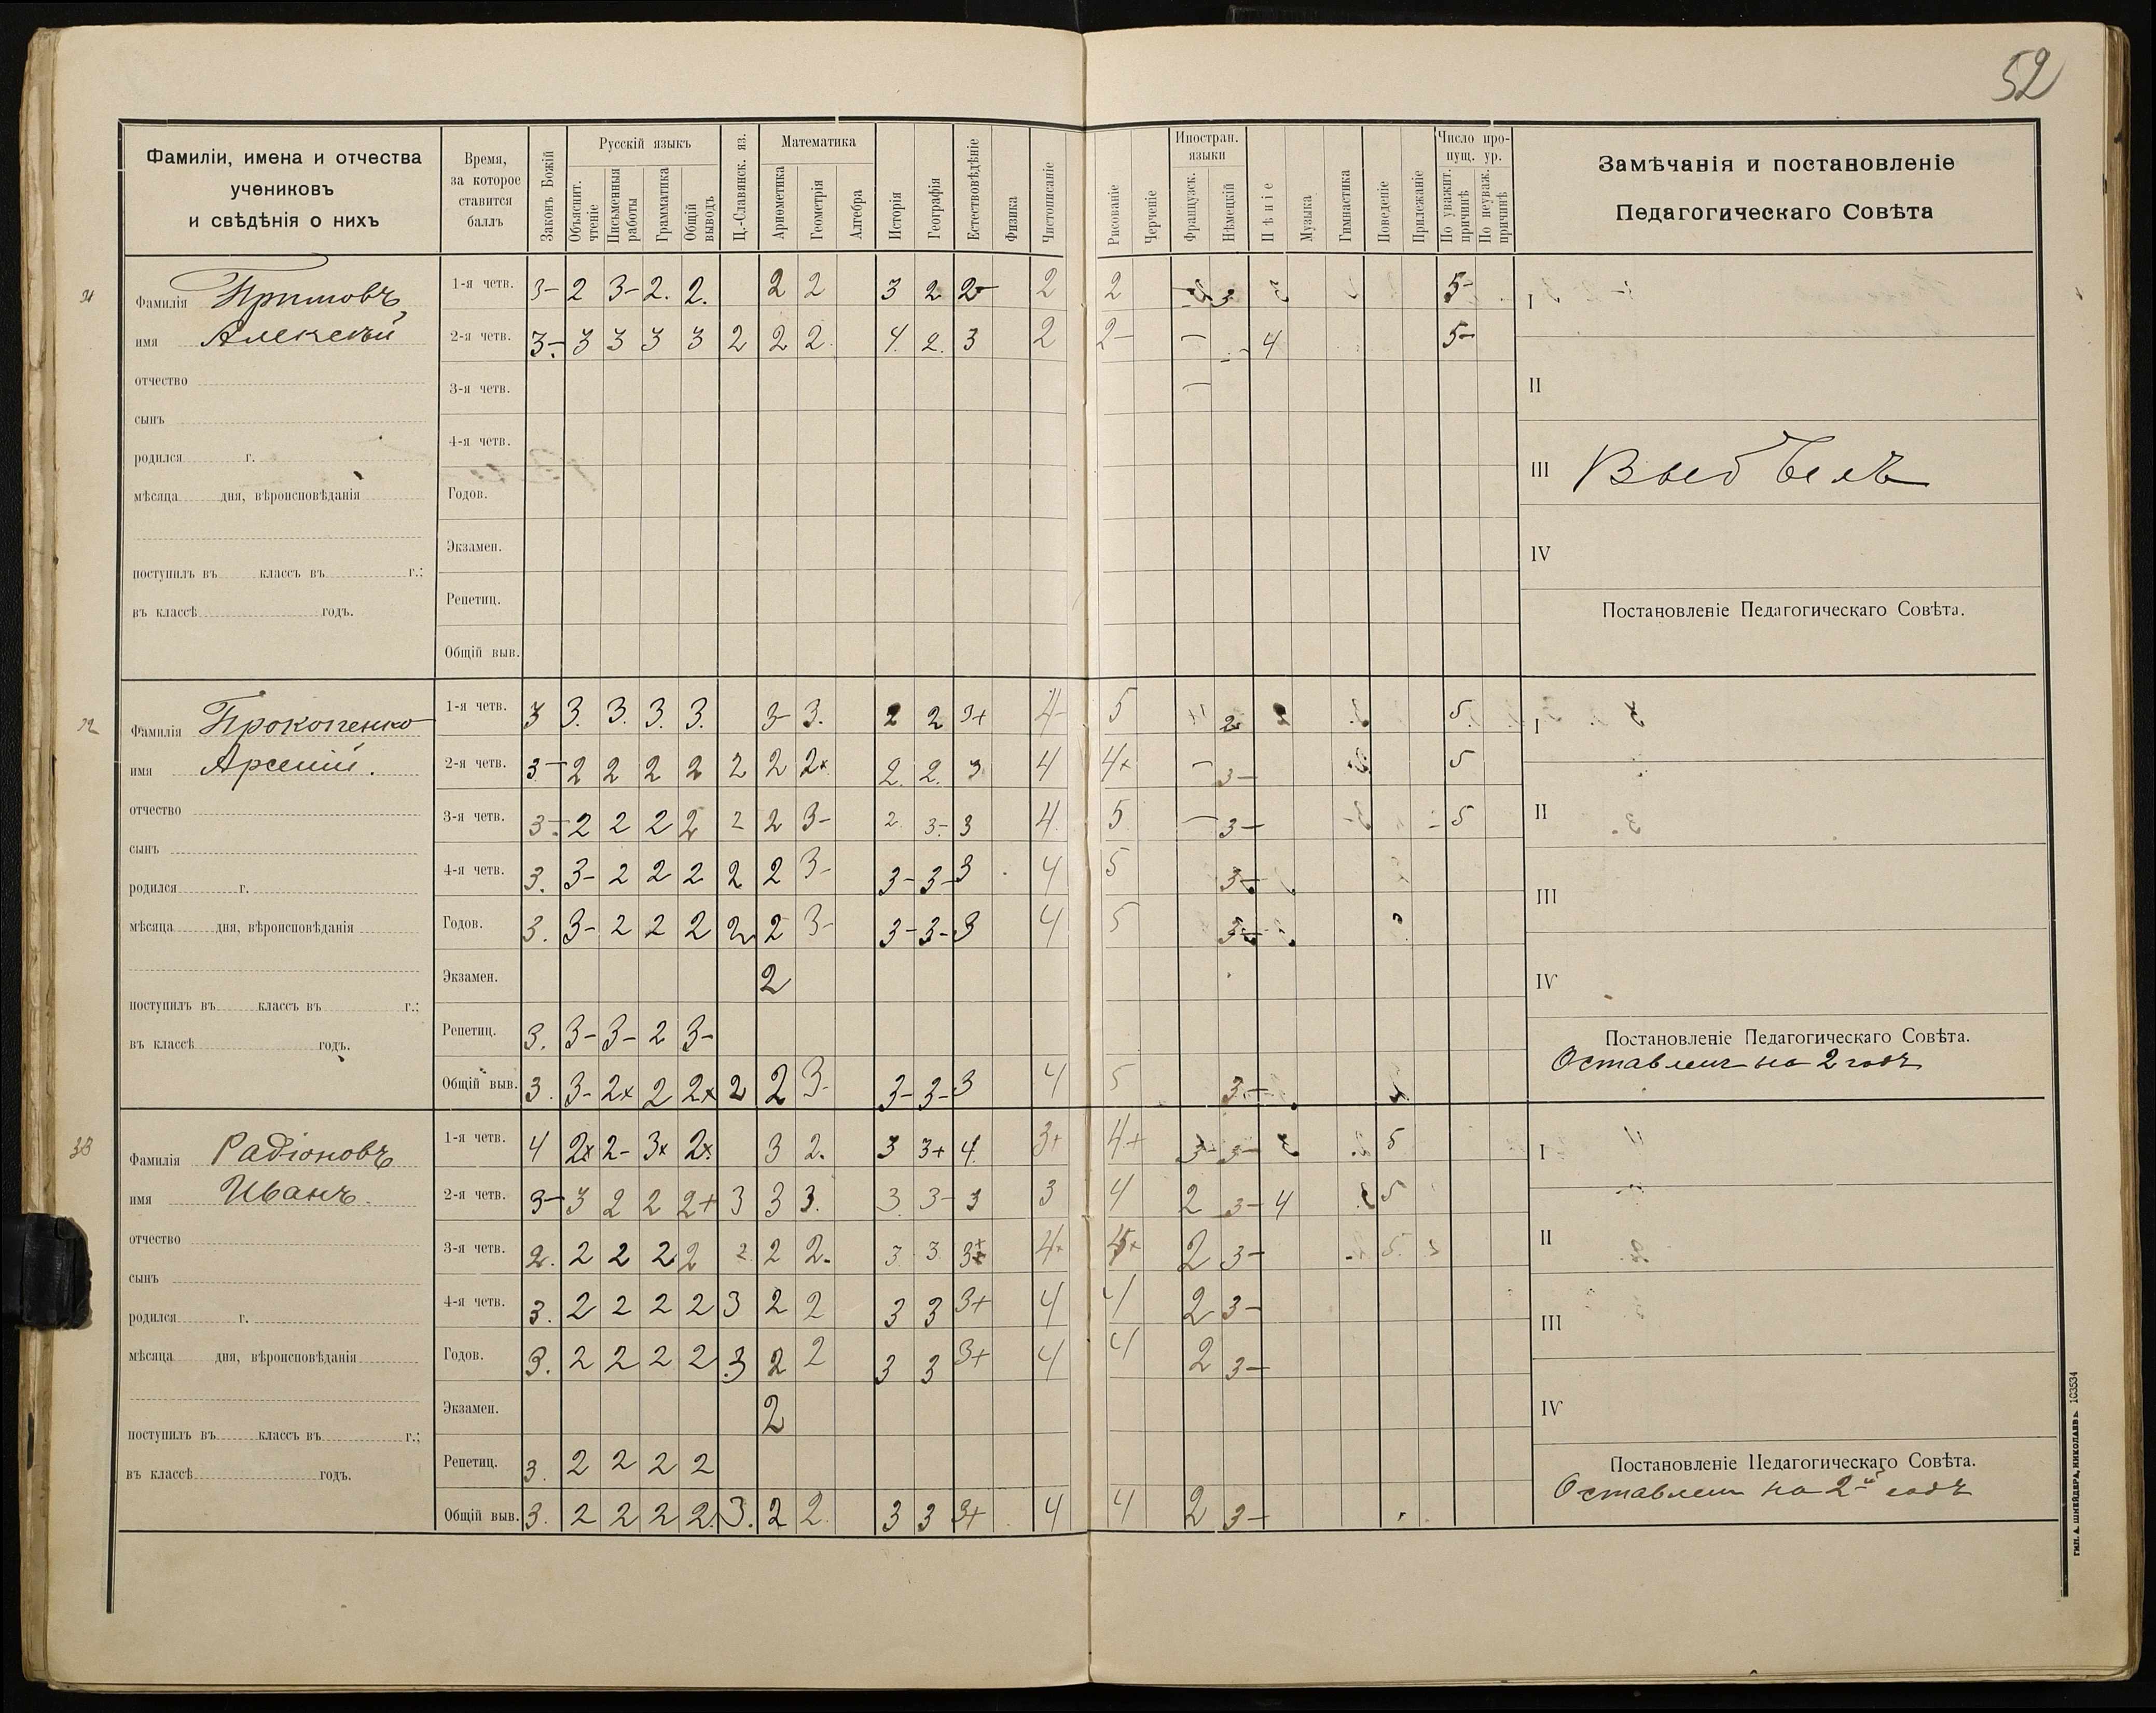 52
Фамиліи, имена и отчества
учениковъ
и свѣдѣнія о нихъ
Время,
за которое
ставится
баллъ
Законъ Божій
Русскій языкъ
Объяснит.
чтеніе
Письменныя
работы
Грамматика
Общій
выводъ
Ц.-Славянск. яз.
Математика
Арифметика
Геометрія
Алгебра
Исторія
Географія
Естествовѣдѣніе
Физика
Чистописаніе
Рисованіе
Черченіе
Иностран.
языки
Французск.
Нѣмецкій
Пѣніе
Музыка
Гимнастика
Поведеніе
Прилежаніе
Число про-
пущ. ур.
По уважит.
причинѣ
По неуваж.
причинѣ
Замѣчанія и постановленіе
Педагогическаго Совѣта
Фамилія
имя Алексѣй
отчество
сынъ
родился г.
мѣсяца дня, вѣроисповѣданія
поступилъ въ классъ въ г.;
въ классѣ годъ.
1-я четв. 3- 2 3- 2. 2. 2 2 3 2 2- 2 2 5-
2-я четв. 3- 3 3 3 3 2 2 2. 4. 2. 3 2 2- - 4 5-
3-я четв. -
4-я четв.
Годов.
Экзамен.
Репетиц.
Общій выв.
I
II
III Выбылъ
IV
Постановленіе Педагогическаго Совѣта.
Фамилія Прокопенко
имя Арсеній.
отчество
сынъ
родился г.
мѣсяца дня, вѣроисповѣданія
поступилъ въ классъ въ г.;
въ классѣ годъ.
1-я четв. 3 3. 3. 3. 3. 3- 3. 2 2 3+ 4- 5 5.
2-я четв. 3- 2 2 2 2 2 2 2+ 2. 2. 3 4 4+ - 3- 5
3-я четв. 3- 2 2 2 2 2 2 3- 2. 3- 3 4. 5 - 3- 5
4-я четв. 3. 3- 2 2 2 2 2 3- 3- 3- 3 4 5 3-
Годов. 3. 3- 2 2 2 2 2 3- 3- 3- 3 4 5 3-
Экзамен. 2
Репетиц. 3. 3- 3- 2 3-
Общій выв. 3. 3- 2+ 2 2+ 2 2 3- 3- 3- 3 4 5 3-
I
II
III
IV
Постановленіе Педагогическаго Совѣта.
Оставленъ на 2 годъ
33
Фамилія Радіоновъ
имя Иванъ.
отчество
сынъ
родился г.
мѣсяца дня, вѣроисповѣданія
поступилъ въ классъ въ г.;
въ классѣ годъ.
1-я четв. 4 2+ 2- 3+ 2+ 3 2. 3 3+ 4. 3+ 4+ 3- 3- 5
2-я четв. 3- 3 2 2 2+ 3 3 3. 3. 3- 3 3 4 2 3- 4 5
3-я четв. 2. 2 2 2 2 2. 2 2. 3. 3. 3+ 4+ 2 3- 5.
4-я четв. 3. 2 2 2 2 3 2 2 3 3 3+ 4 4 2 3-
Годов. 3. 2 2 2 2 3 2 2 3 3 3+ 4 4 2 3-
Экзамен. 2
Репетиц. 3. 2 2 2 2
Общій выв. 3. 2 2 2 2. 3. 2 2. 3 3 3+ 4 4 2 3-
I
II
III
IV
Постановленіе Педагогическаго Совѣта.
Оставленъ на 2й годъ
ТИП. А. ШНЕЙДЕРА, НИКОЛАЕВЪ 103534